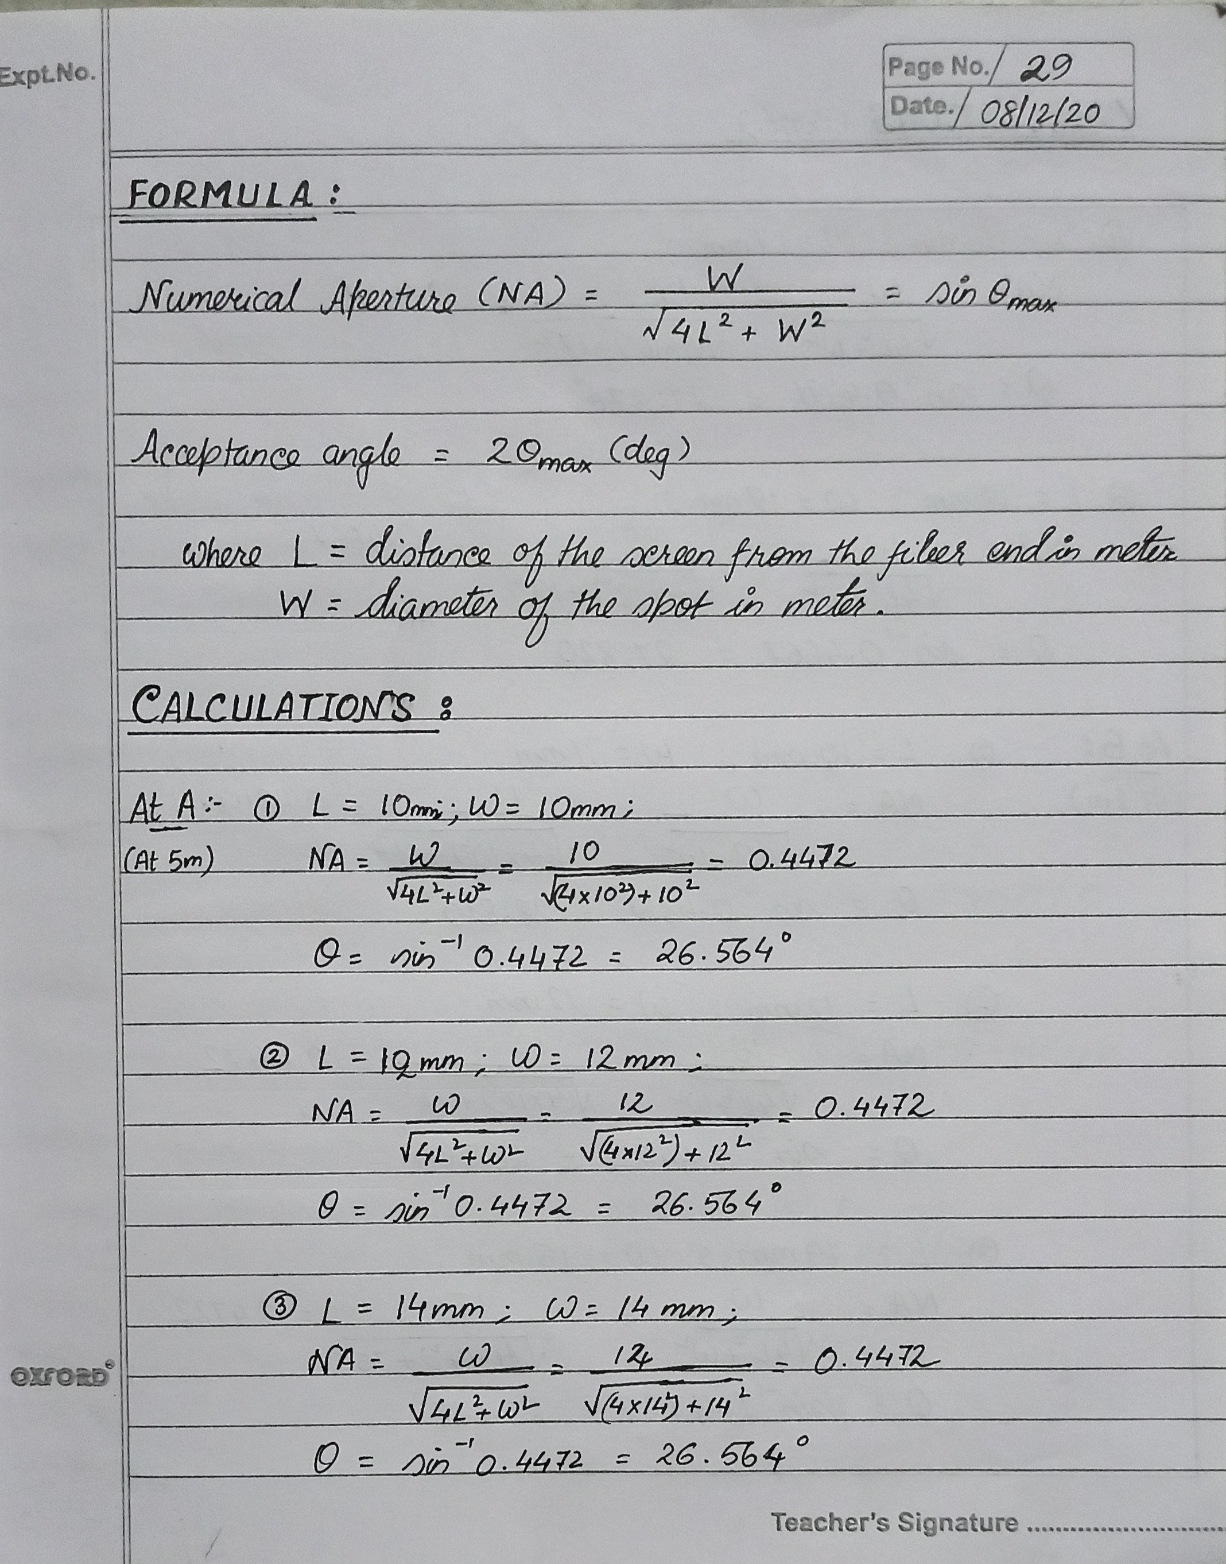 Expt.No.
Page No. 29
Date. 08/12/20
FORMULA :
Numerical Aperture (NA) = W / √4L² + W² = sin θmax
Acceptance angle = 2θmax (deg)
where L = distance of the screen from the fiber end in meter
W = diameter of the spot in meter.
CALCULATIONS :
At A :- ① L = 10mm; W = 10mm;
(At 5m) NA = W / √4L²+W² = 10 / √(4x10²)+10² = 0.4472
θ = sin⁻¹ 0.4472 = 26.564°
② L = 12mm; W = 12mm;
NA = W / √4L²+W² = 12 / √(4x12²)+12² = 0.4472
θ = sin⁻¹ 0.4472 = 26.564°
③ L = 14mm; W = 14mm;
NA = W / √4L²+W² = 14 / √(4x14²)+14² = 0.4472
θ = sin⁻¹ 0.4472 = 26.564°
OXFORD®
Teacher's Signature ..............................